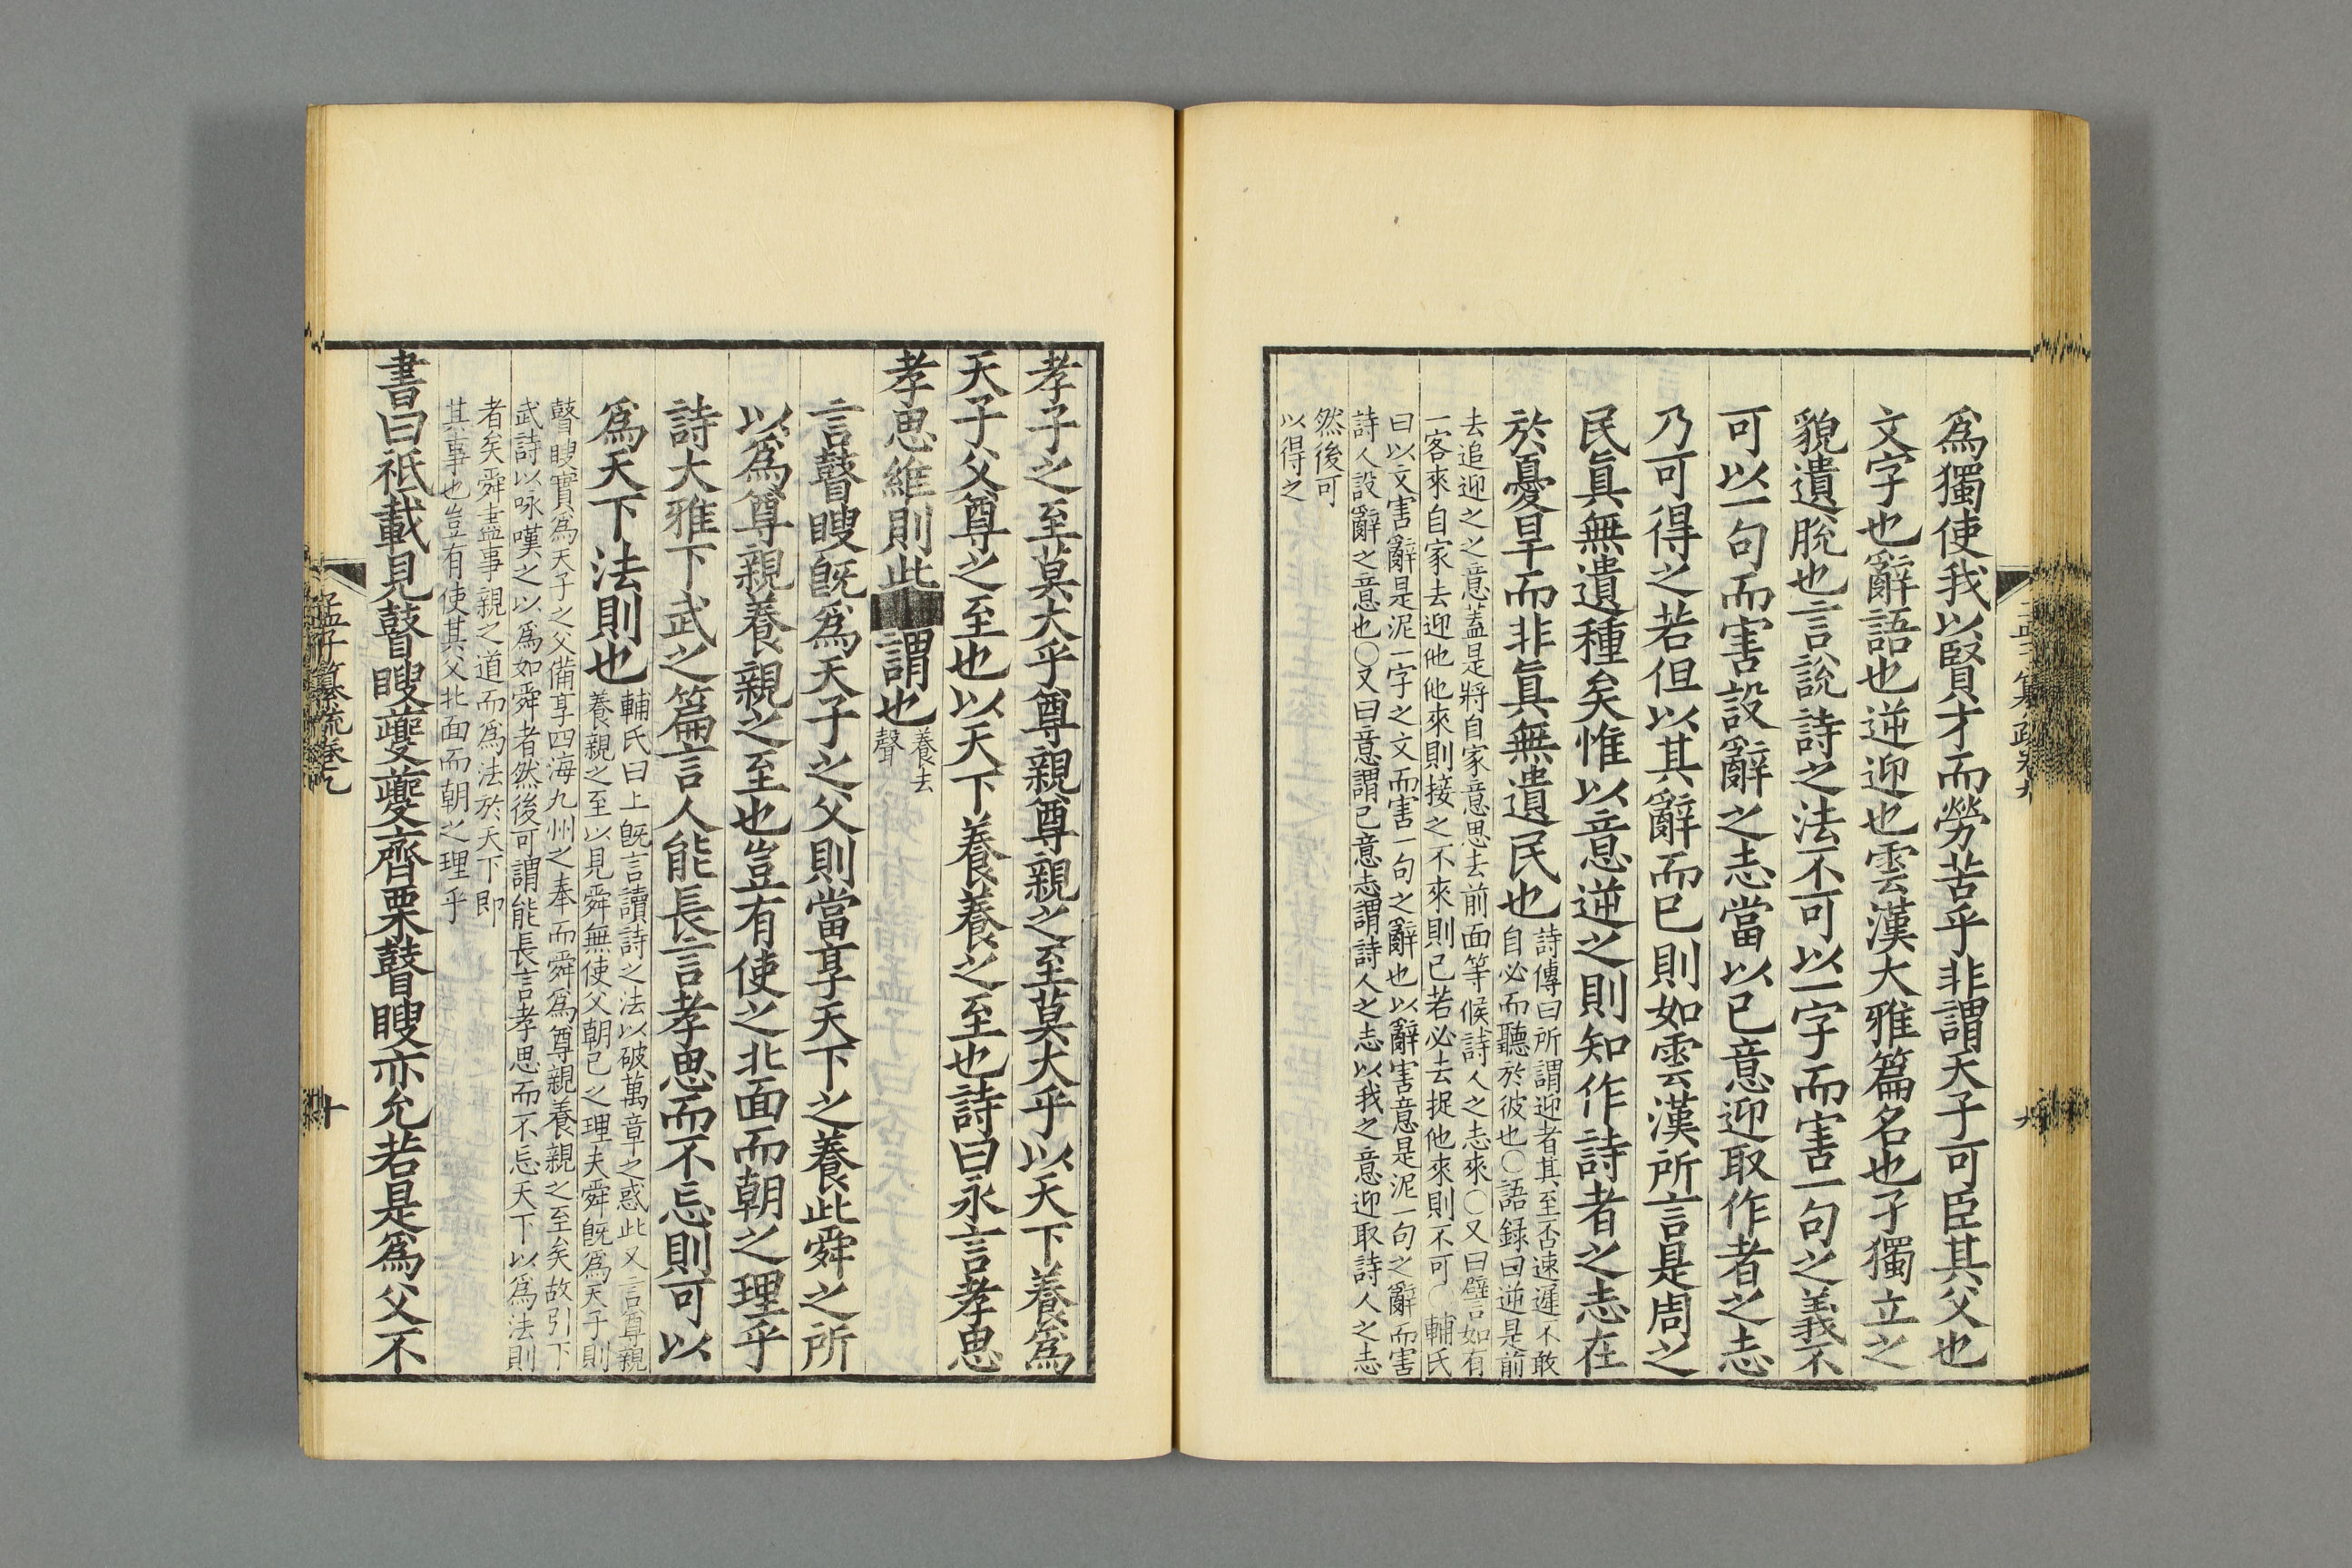 爲獨使我以賢才而勞苦乎非謂天子可臣其父也
文字也辭語也逆迎也雲漢大雅篇名也孑獨立之
貌遺脫也言說詩之法不可以一字而害一句之義不
可以一句而害設辭之志當以已意迎取作者之志
乃可得之若但以其辭而已則如雲漢所言是周之
民眞無遺種矣惟以意逆之則知作詩者之志在
於憂旱而非眞無遺民也
詩傳曰所謂迎者其至否速遲不敢
自必而聽於彼也〇語録曰逆是前
去追迎之之意蓋是將自家意思去前面等候詩人之志來〇又曰譬言如有
一客來自家去迎他他來則接之不來則已若必去捉他來則不可〇輔氏
曰以文害辭是泥一字之文而害一句之辭也以辭害意是泥一句之辭而害
詩人設辭之意也〇又曰意謂已意志謂詩人之志以我之意迎取詩人之志
然後可
以得之
孝子之至莫大乎尊親尊親之至莫大乎以天下養爲
天子父尊之至也以天下養養之至也詩曰永言孝思
孝思維則此謂也
養去
聲
言瞽瞍旣爲天子之父則當享天下之養此舜之所
以爲尊親養親之至也豈有使之北面而朝之理乎
詩大雅下武之篇言人能長言孝思而不忘則可以
爲天下法則也
輔氏曰上旣言讀詩之法以破萬章之惑此又言尊親
養親之至以見舜無使父朝已之理夫舜旣爲天子則
瞽瞍實爲天子之父備享四海九州之奉而舜爲尊親養親之至矣故引下
武詩以咏嘆之以爲如舜者然後可謂能長言孝思而不忘天下以爲法則
者矣舜盡事親之道而爲法於天下即
其事也豈有使其父北面而朝之理乎
書曰祗載見瞽瞍夔夔齊栗瞽瞍亦允若是爲父不
孟子纂疏卷九
十